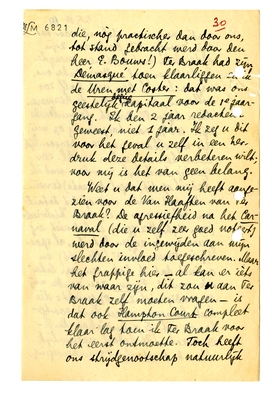 30
M 6821
die, nòg practischer dan door ons,
tot stand gebracht werd door den
heer E. Bouws!) Ter Braak had zijn
Demasqué toen klaarliggen
de Uren met Coster: dat was ons
geestelijk kapitaal voor de 1e jaar-
gang. Ik ben 2 jaar redacteur
geweest, niet 1 jaar. Ik zeg u dit
voor het geval u zelf in een her-
druk deze details verbeteren wilt;
voor mij is het van geen belang.
Weet u dat men mij heeft aange-
zien voor de Van Haaften van Ter
Braak? De agressiefheid na het Car-
naval (die u zelf zeer goed noteert)
werd door de ingewijden aan mijn
slechten invloed toegeschreven. Maar
het frappige hier - al kan er iets
van waar zijn, dit zou u aan Ter
Braak zelf moeten vragen - is
dat ook Hampton Court compleet
klaar lag toen ik Ter Braak voor
het eerst ontmoette. Toch heeft
ons strijdgenootschap natuurlijk